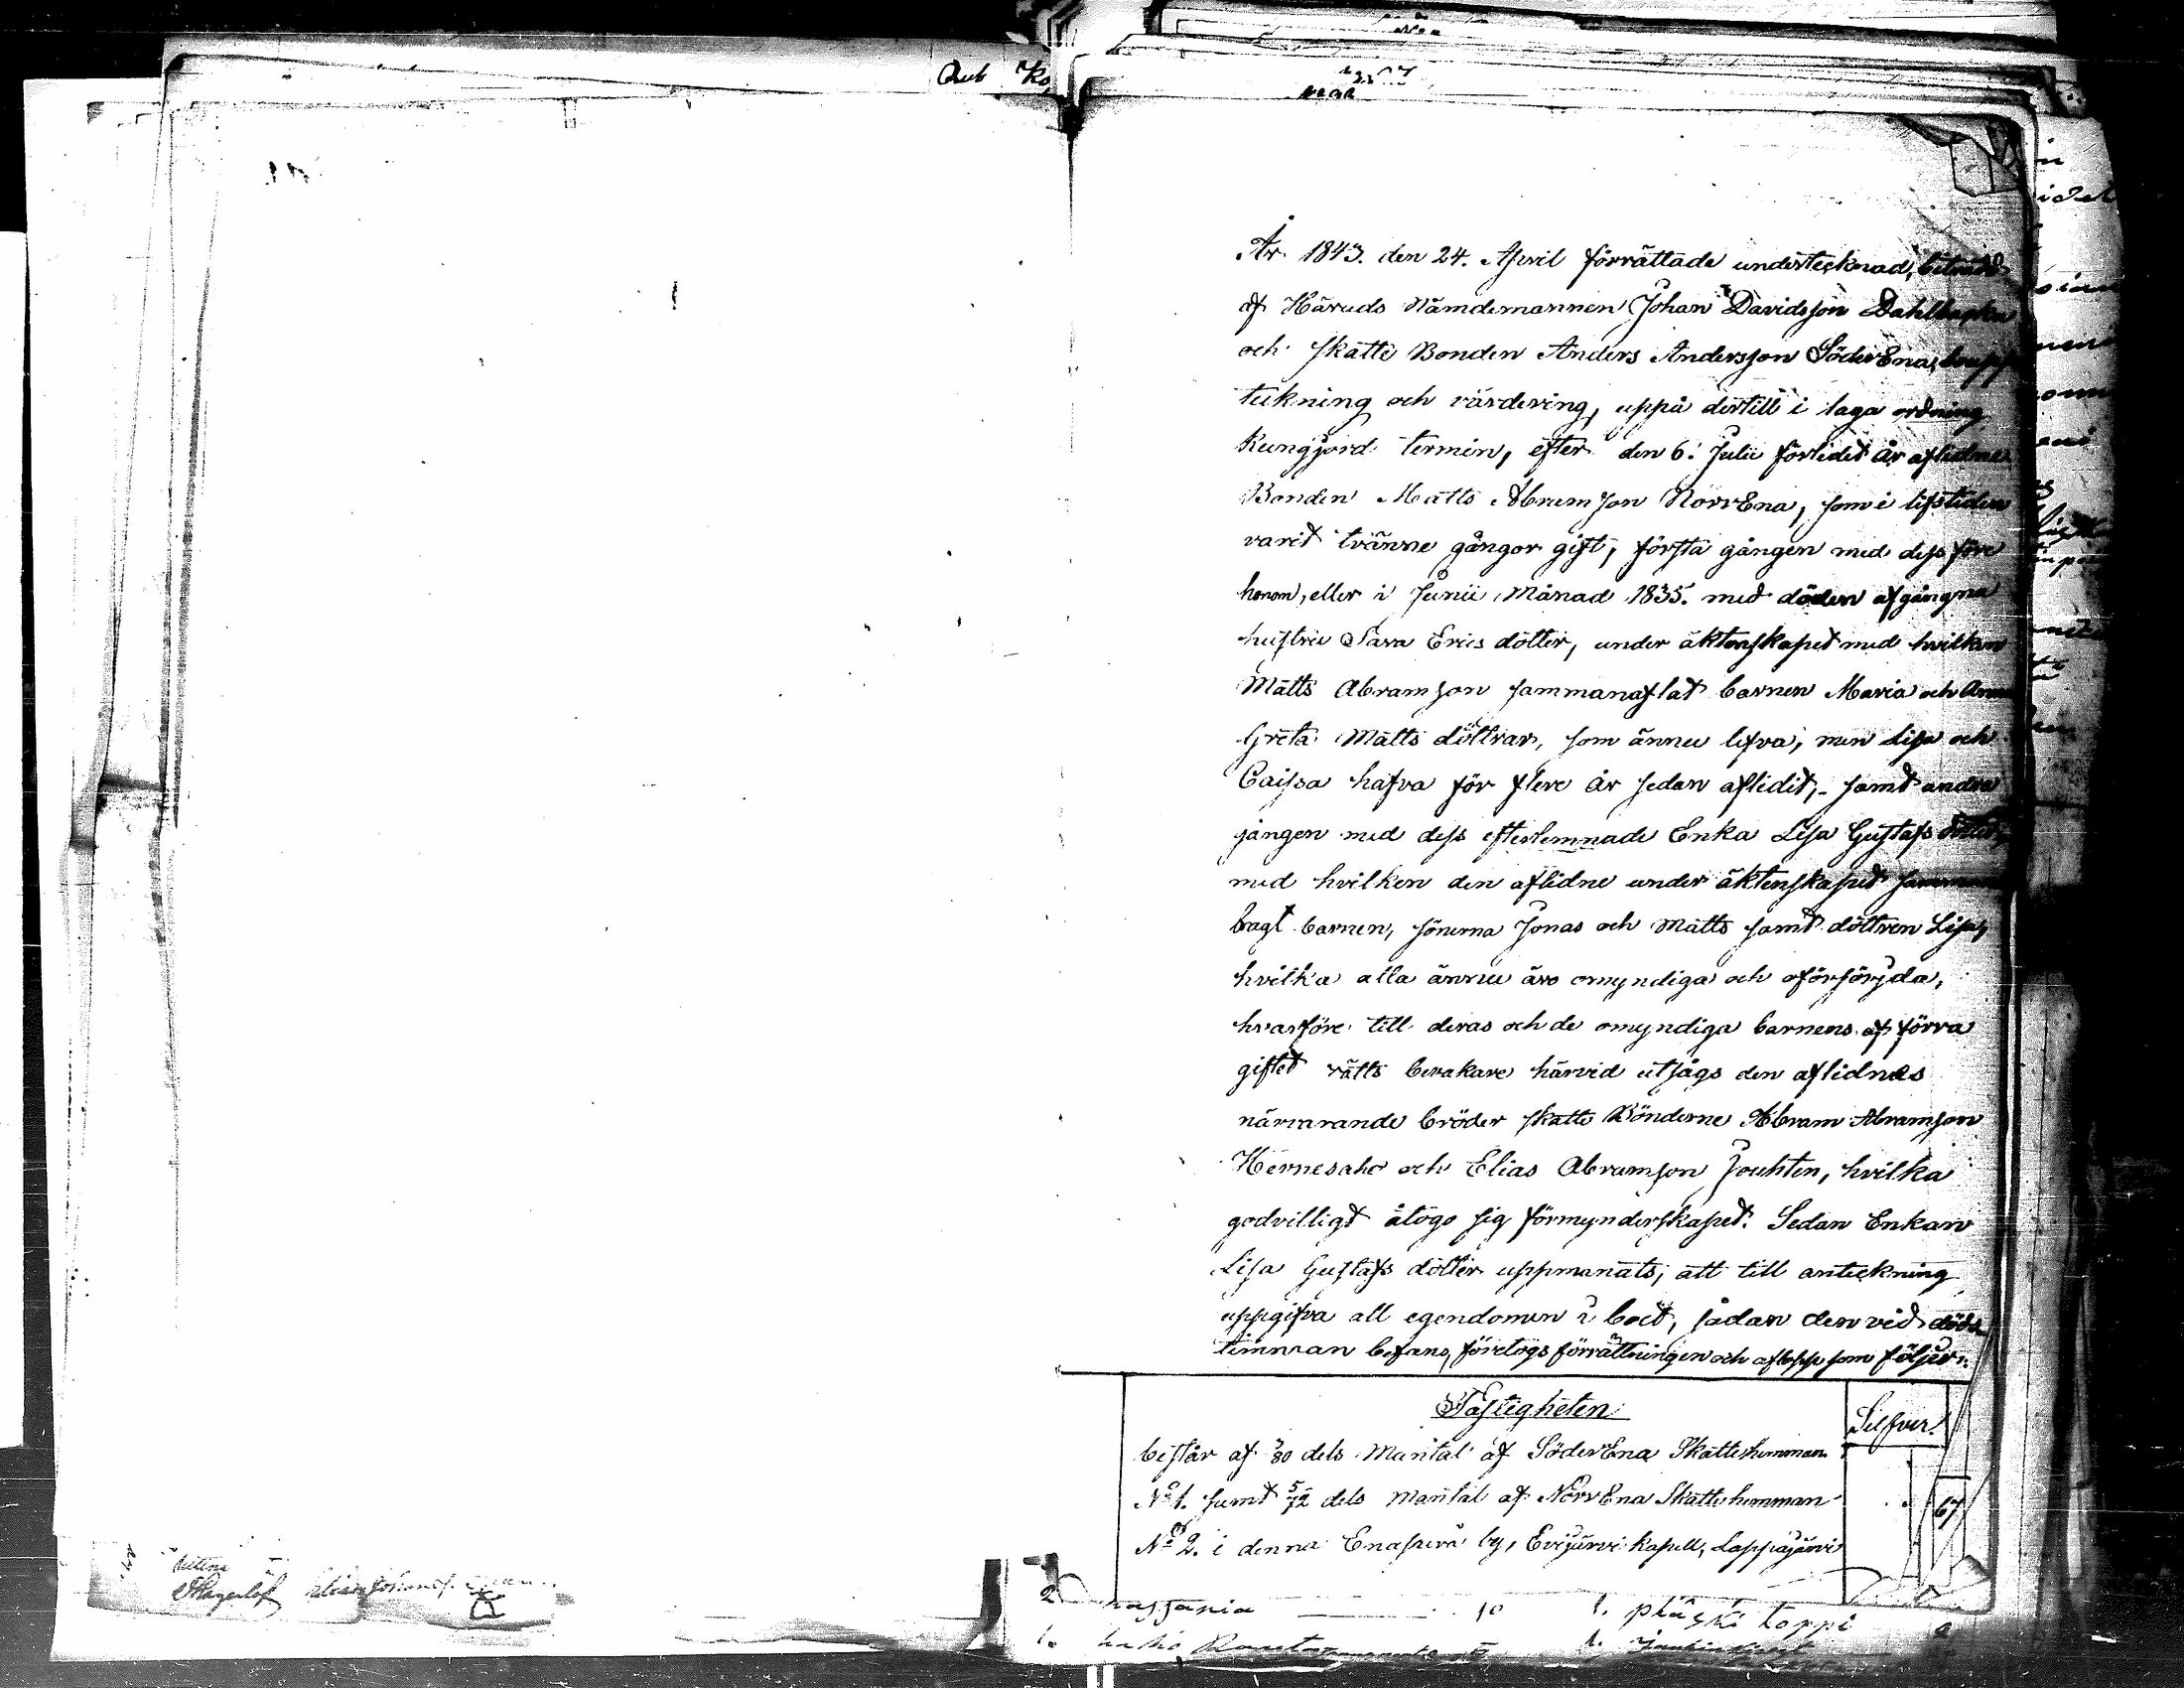 År 1843. den 24. April förrättade undertecknad, biträdd
af Härads Nämdemannen Johan Davidsson Dahlbacka
och Skatte Bonden Anders Andersson SöderEna, boupp
teckning och värdering, uppå dertill i laga ordning
kungjord termin, efter den 6. Julii förledit år aflidne
Bonden Matts Abramsson NorrEna, som i lifstiden
varit tvänne gångor gift, första gången med dess före
honom, eller i Junii Månad 1835. med döden afgångna
hustru Sara Erics dotter, under äktenskapet med hvilken
Matts Abramsson sammanaflat barnen Maria och Anna
Greta Matts döttrar, som ännu lefva, men Lisa och
Caisa hafva för flere år sedan aflidit, - samt andra
gången med dess efterlemnade Enka Lisa Gustafs dotter,
med hvilken den aflidne under äktenskapet samman
bragt barnen, sönerna Jonas och Matts samt dottren Lisa,
hvilka alla ännu äro omyndiga och oförsörjda,
hvarföre till deras och de omyndiga barnens af förra
giftet rätts bevakare härvid utsågs den aflidnes
närvarande bröder skatte Bönderne Abram Abramsson
Hernesaho och Elias Abramsson Jouhten, hvilka
godvilligt åtogo sig förmynderskapet. Sedan Enkan
Lisa Gustafs dotter uppmanats, att till anteckning
uppgifva all egendomen i boet, sådan den vid döds
timman befans, företogs förrättningen och aflopp som följer:
Fastigheten
Silfver.
består af 80 dels Mantal af SöderEna Skattehemman
No 1. samt 5/72 dels Mantal af NorrEna Skatte hemman
67
No 2. i denna Enaperä by, Evijärvi kapell, Lappajärvi
2
10
1. plåski toppi
1.
1.